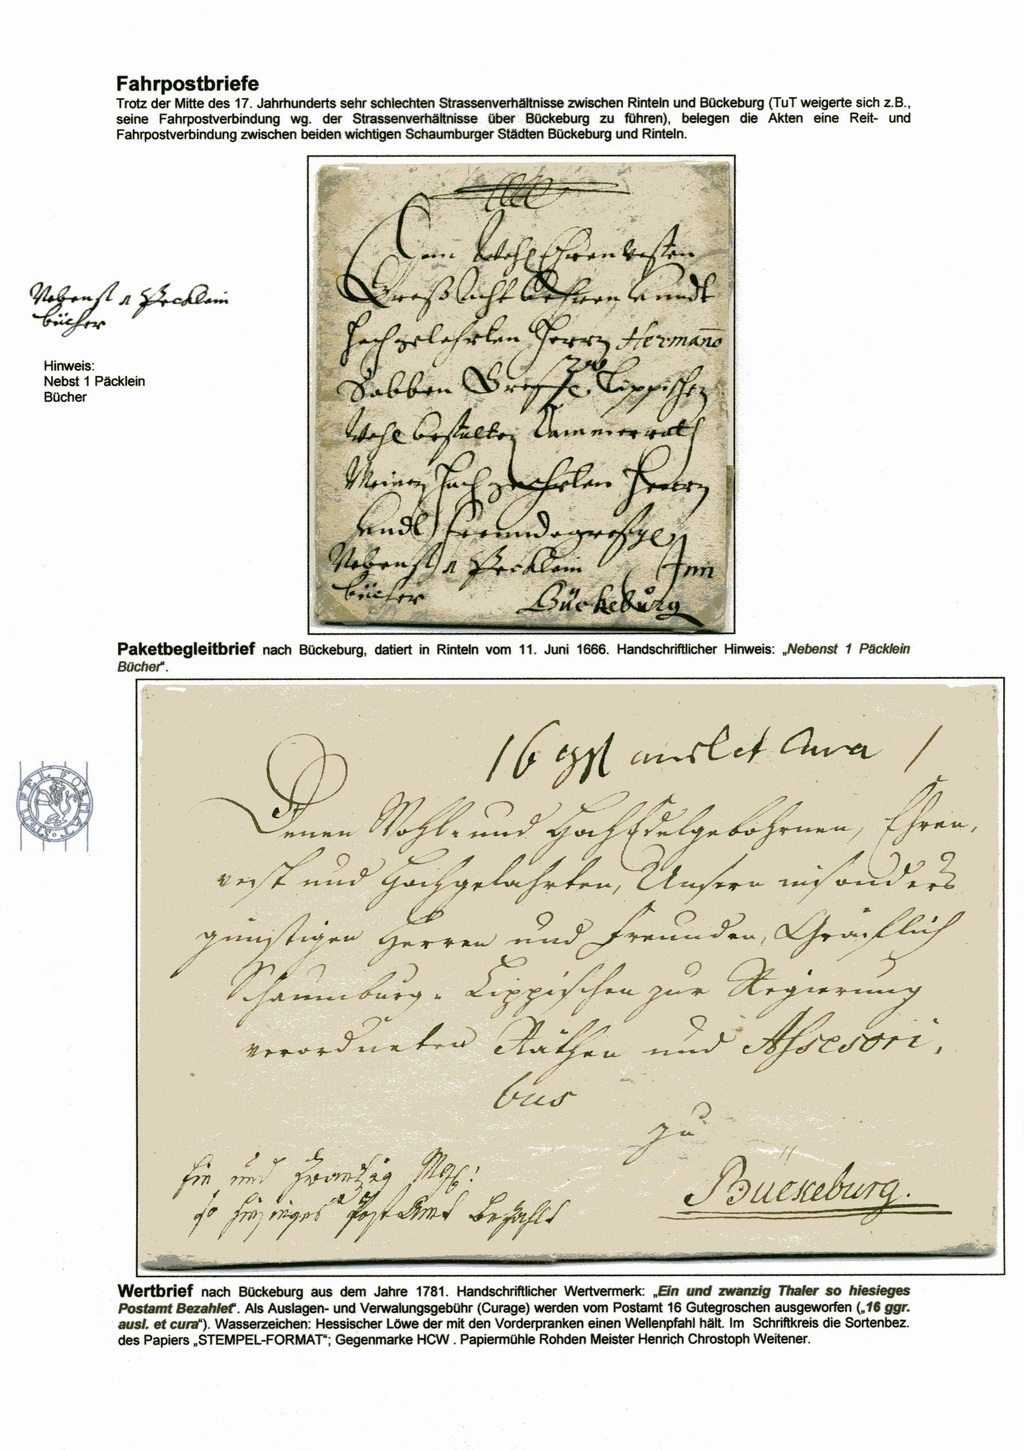 Fahrpostbriefe
Trotz der Mitte des 17. Jahrhunderts sehr schlechten Strassenverhältnisse zwischen Rinteln und Bückeburg (TuT weigerte sich z.B.,
seine Fahrpostverbindung wg. der Strassenverhältnisse über Bückeburg zu führen), belegen die Akten eine Reit- und
Fahrpostverbindung zwischen beiden wichtigen Schaumburger Städten Bückeburg und Rinteln.
Dem Wohl Ehren Vesten
Großacht bahren undt
Hochgelehrten Herrn Hermanno
Gräffl. Lippischen
Wohlbestalten Cammerrath
Meinem hochgeehrten Herrn
undt
Nebenst 1 Pecklein Inn
bücher Bückeburg
Nebenst 1 Pecklein
bücher
Hinweis:
Nebst 1 Päcklein
Bücher
Paketbegleitbrief nach Bückeburg, datiert in Rinteln vom 11. Juni 1666. Handschriftlicher Hinweis: „Nebenst 1 Päcklein
Bücher“.
16 ggl ausl et Cura
Denen Wohl- und HochEdelgebohrnen, Ehren,
vest und Hochgelahrten, Unsern insonders
günstigen Herren und Freunden, Gräflich
Schaumburg-Lippischen zur Regierung
verordneten Räthen und Assesori,
bus
zu
Bückeburg.
Ein und zwantzig
so hiesiges Post Amt bezahlt
STEMPEL FORMAT
Wertbrief nach Bückeburg aus dem Jahre 1781. Handschriftlicher Wertvermerk: „Ein und zwanzig Thaler so hiesieges
Postamt Bezahlet“. Als Auslagen- und Verwalungsgebühr (Curage) werden vom Postamt 16 Gutegroschen ausgeworfen („16 ggr.
ausl. et cura“). Wasserzeichen: Hessischer Löwe der mit den Vorderpranken einen Wellenpfahl hält. Im Schriftkreis die Sortenbez.
des Papiers „STEMPEL-FORMAT“; Gegenmarke HCW . Papiermühle Rohden Meister Henrich Chrostoph Weitener.